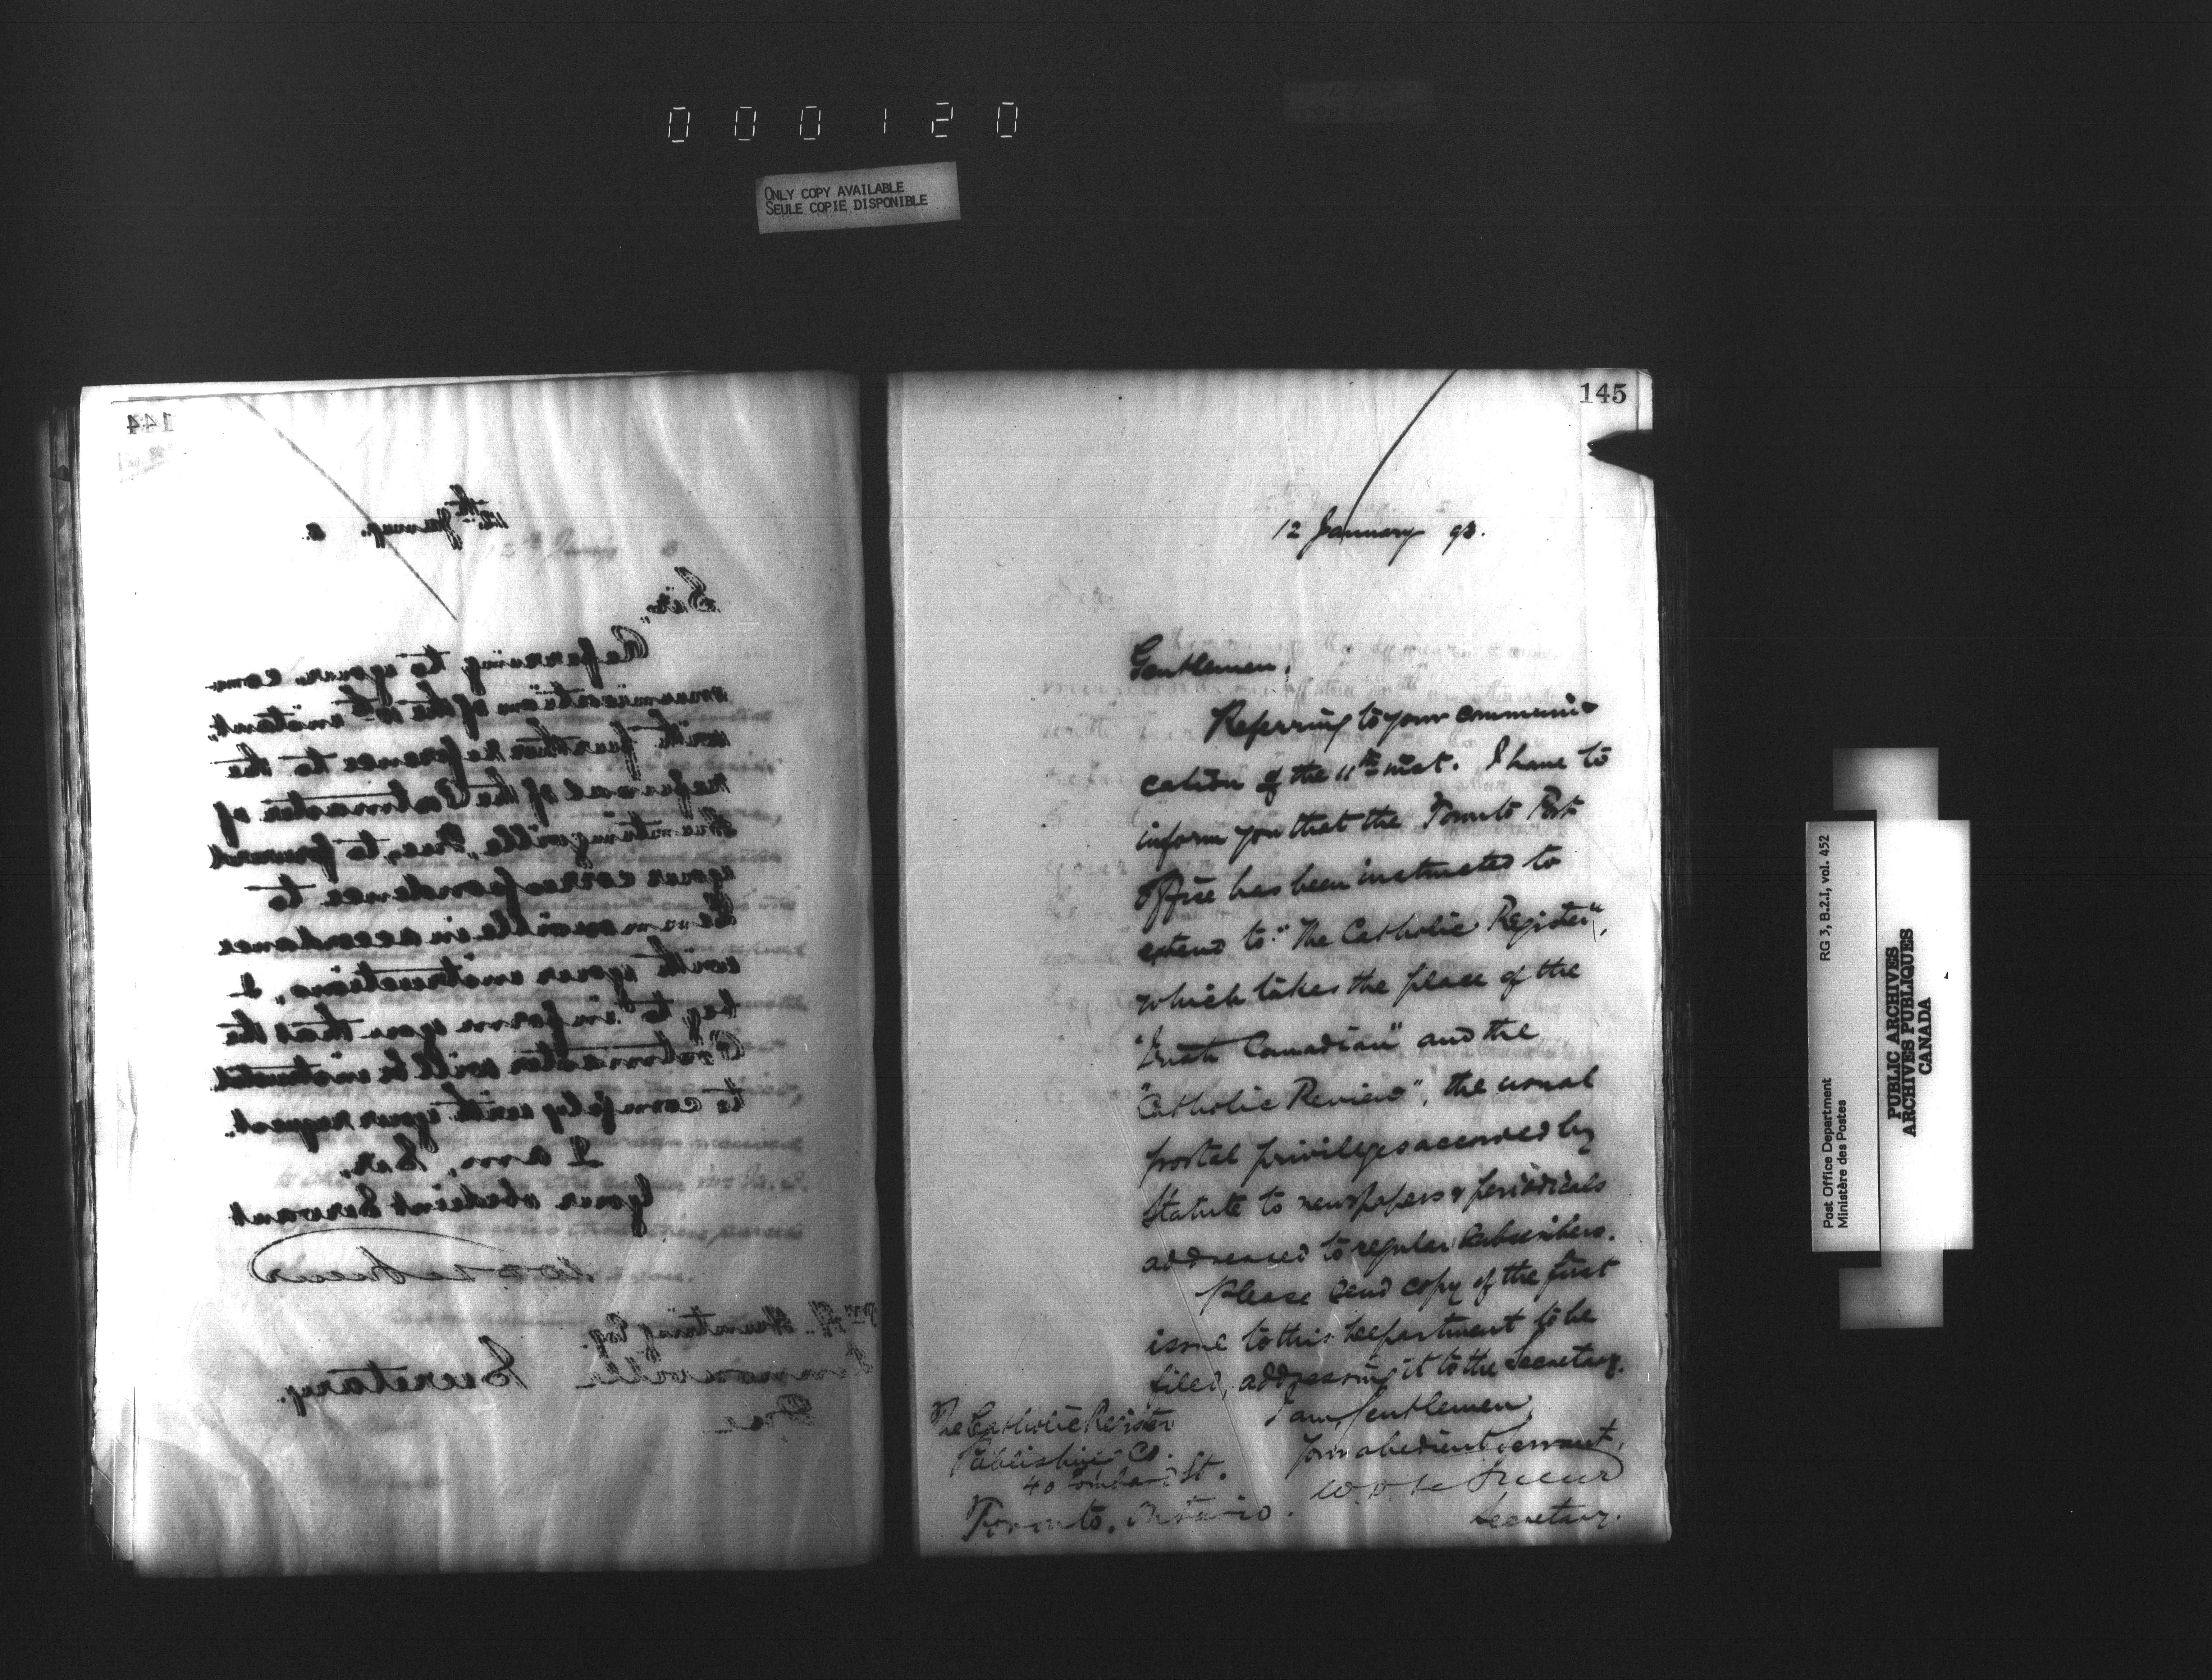 000120
ONLY COPY AVAILABLE
SEULE COPIE DISPONIBLE
144
12th January. 3.
Sir,
Referring to your com-
munication of the 10th instant,
with further reference to the
refusal of the Postmaster of
Huntingville, Que, to forward
your correspondence to
Lennoxville in accordance
with your instructions, I
beg to inform you that the
Postmaster will be instructed
to comply with your request.
I am, Sir,
Your obedient Servant
W D LeSueur
Secretary.
Wm H. Hunting Esq.
Lennoxville
Que
145
12 January 93.
Gentlemen,
Referring to your communi-
cation of the 11th inst. I have to
inform you that the Toronto Post
Office has been instructed to
extend to "The Catholic Register",
which takes the place of the
"Irish Canadian" and the
"Catholic Review", the usual
postal privileges accorded by
Statute to newspapers & periodicals
addressed to regular Subscribers.
Please send copy of the first
issue to this Department to be
filed, addressing it to the Secretary.
I am, Gentlemen,
Your obedient Servant,
W. D. Le Sueur
Secretary.
The Catholic Register
Publishing Co.
40 Lombard St.
Toronto, Ontario.
Post Office Department
Ministère des Postes
RG 3, B.2.I, vol. 452
PUBLIC ARCHIVES
ARCHIVES PUBLIQUES
CANADA